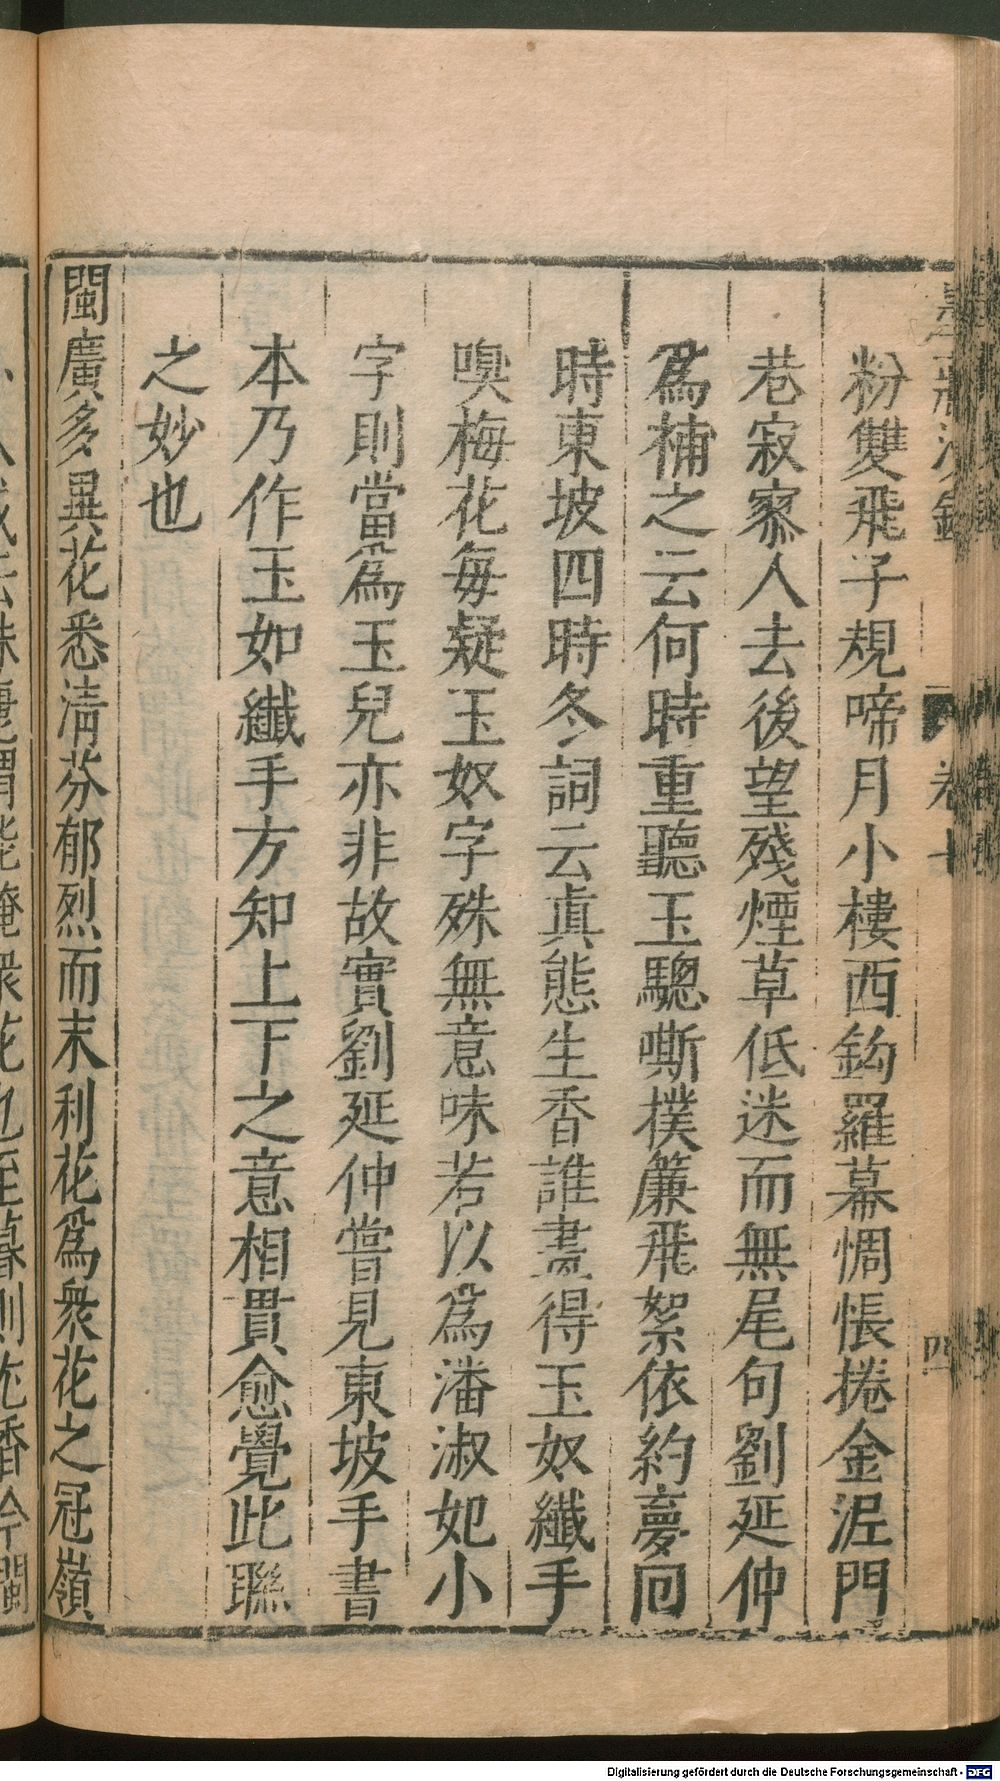 粉雙飛子規啼月小樓西鈎羅幕惆悵捲金泥門
巷寂寥人去後望殘煙草低迷而無尾句劉延仲
爲補之云何時重聽玉驄嘶撲簾飛絮依約夢回
時東坡四時冬詞云真態生香誰畫得玉奴纖手
嗅梅花每疑玉奴字殊無意味若以爲潘淑妃小
字則當爲玉兒亦非故實劉延仲嘗見東坡手書
本乃作玉如纖手方知上下之意相貫愈覺此聯
之妙也
閩廣多異花悉清芬郁烈而末利花爲衆花之冠嶺
卷七
四
Digitalisierung gefördert durch die Deutsche Forschungsgemeinschaft - DFG